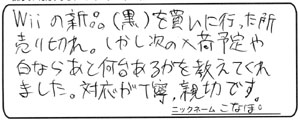 Wiiの新品(黒)を買いに行った所
売り切れ。しかし次の入荷予定や
白ならあと何台あるかを教えてくれ
ました。対応が丁寧,親切です。
ニックネーム こなは。